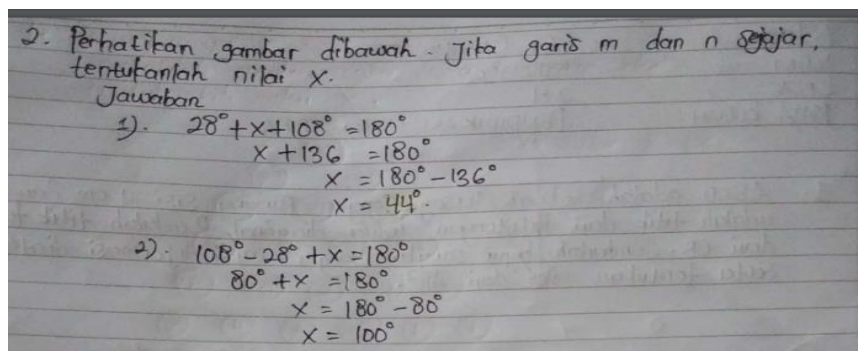 2. Perhatikan gambar dibawah. Jika garis m dan n sejajar,
tentukanlah nilai x.
Jawaban
1). 28° + x + 108° = 180°
x + 136 = 180°
x = 180° - 136°
x = 44°.
2). 108° - 28° + x = 180°
80° + x = 180°
x = 180° - 80°
x = 100°